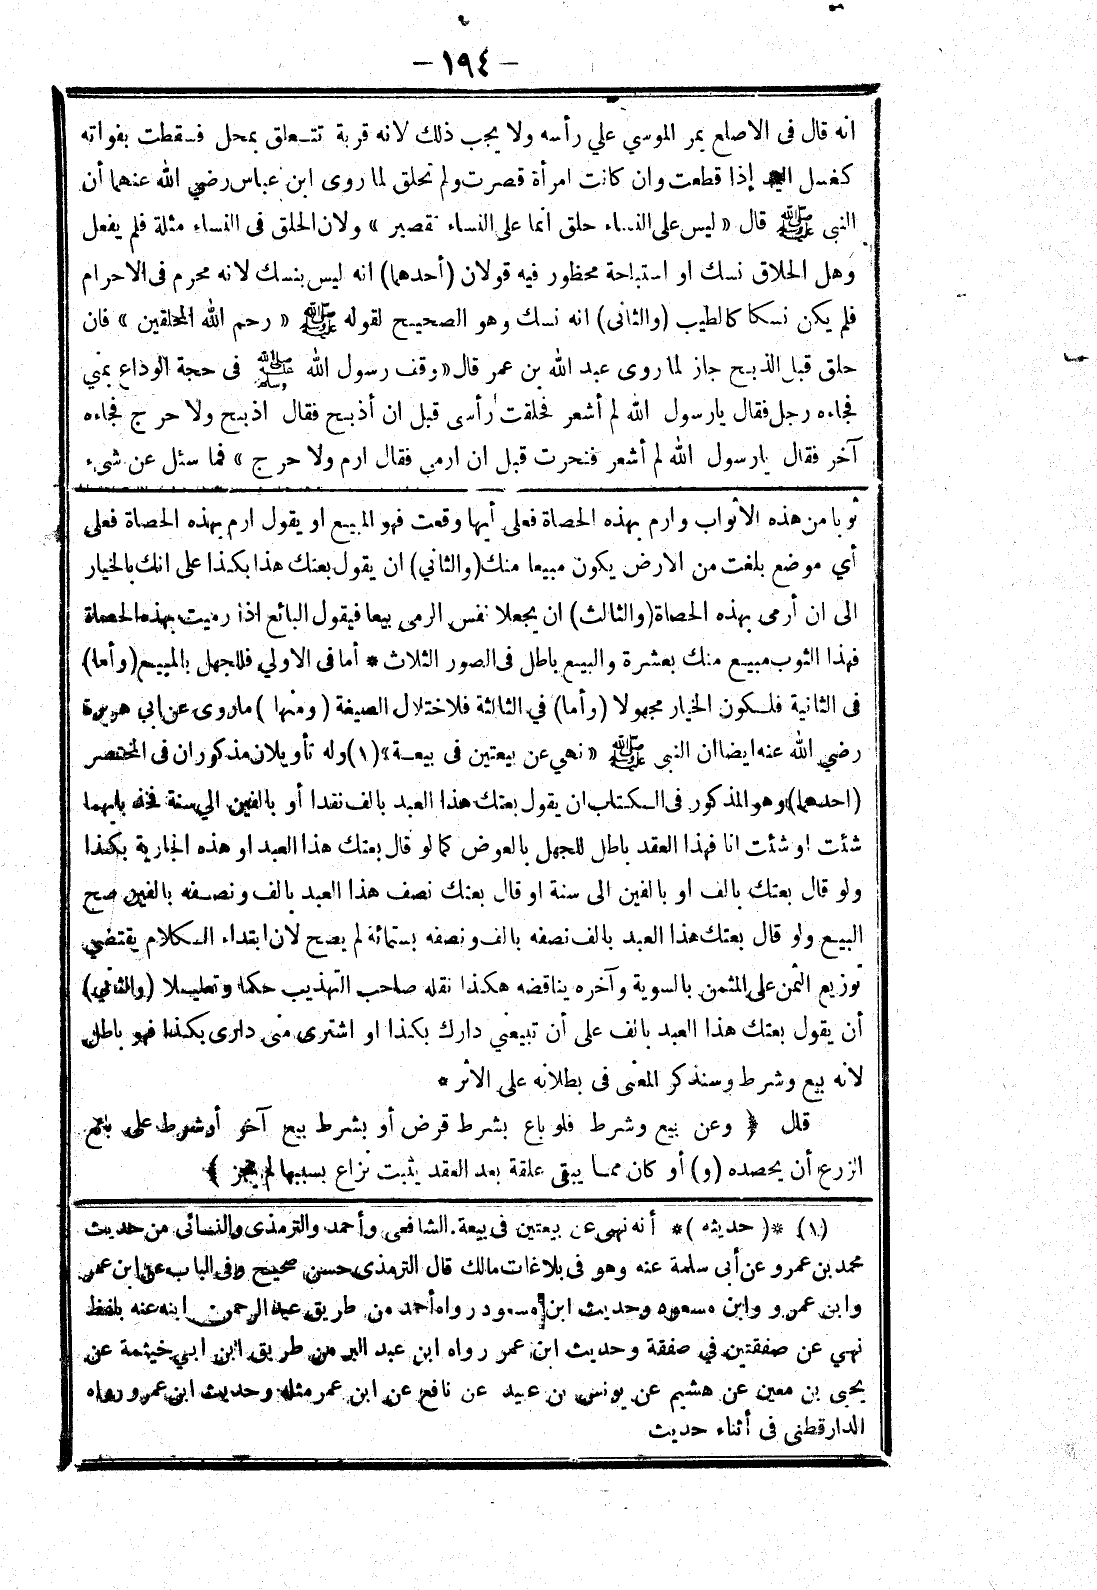 — ١٩٤ —
انه قال فى الاصلع يمر الموسي علي رأسه ولا يجب ذلك لانه قربة تتعلق بمحل فسقطت بفواته
كغسل اليد إذا قطعت وان كانت امرأة قصرت ولم تحلق لما روى ابن عباس رضي الله عنهما أن
النبى ﷺ قال « ليس على النساء حلق انما على النساء تقصير » ولان الحلق فى النساء مثلة فلم يفعل
وهل الحلاق نسك او استباحة محظور فيه قولان (أحدهما) انه ليس بنسك لانه محرم فى الاحرام
فلم يكن نسكا كالطيب (والثانى) انه نسك وهو الصحيح لقوله ﷺ « رحم الله المحلقين » فان
حلق قبل الذبح جاز لما روى عبد الله بن عمر قال « وقف رسول الله ﷺ فى حجة الوداع بمني
فجاءه رجل فقال يارسول الله لم أشعر فحلقت رأسى قبل ان أذبح فقال اذبح ولا حرج فجاءه
آخر فقال يارسول الله لم أشعر فنحرت قبل ان ارمي فقال ارم ولا حرج » فما سئل عن شىء
ثوبا من هذه الاثواب وارم بهذه الحصاة فعلى أيها وقعت فهو المبيع او يقول ارم بهذه الحصاة فعلى
أي موضع بلغت من الارض يكون مبيعا منك (والثاني) ان يقول بعتك هذا بكذا على انك بالخيار
الى ان أرمى بهذه الحصاة (والثالث) ان يجعلا نفس الرمى بيعا فيقول البائع اذا رميت بهذه الحصاة
فهذا الثوب مبيع منك بعشرة والبيع باطل فى الصور الثلاث * أما فى الاولي فللجهل بالمبيع (وأما)
فى الثانية فلكون الخيار مجهولا (وأما) في الثالثة فلاختلال الصيغة (ومنها) ماروى عن ابي هريرة
رضي الله عنه ايضا ان النبى ﷺ « نهي عن بيعتين فى بيعة » (١) وله تأويلان مذكوران فى المختصر
(احدهما) وهو المذكور فى الكتاب ان يقول بعتك هذا العبد بالف نقدا أو بالفين الي سنة فخذ بايهما
شئت او شئت انا فهذا العقد باطل للجهل بالعوض كما لو قال بعتك هذا العبد او هذه الجارية بكذا
ولو قال بعتك بالف او بالفين الى سنة او قال بعتك نصف هذا العبد بالف ونصفه بالفين صح
البيع ولو قال بعتك هذا العبد بالف نصفه بالف ونصفه بستمائة لم يصح لان ابتداء الكلام يقتضي
توزيع الثمن على المثمن بالسوية وآخره يناقضه هكذا نقله صاحب التهذيب حكما وتعليلا (والثاني)
أن يقول بعتك هذا العبد بالف على أن تبيعني دارك بكذا او اشترى منى دارى بكذا فهو باطل
لانه بيع وشرط وسنذكر المعنى فى بطلانه على الاثر *
قال ﴿ وعن بيع وشرط فلو باع بشرط قرض أو بشرط بيع آخر أو شرط على بائع
الزرع أن يحصده (و) أو كان مما يبقى علقة بعد العقد يثبت نزاع بسببها لم يجز ﴾
(١) * (حديثه) * أنه نهى عن بيعتين فى بيعة. الشافعي وأحمد والترمذى والنسائى من حديث
محمد بن عمرو عن أبى سلمة عنه وهو فى بلاغات مالك قال الترمذى حسن صحيح وفى الباب عن ابن عمر
وابن عمرو وابن مسعود وحديث ابن مسعود رواه أحمد من طريق عبد الرحمن ابنه عنه بلفظ
نهي عن صفقتين في صفقة وحديث ابن عمر رواه ابن عبد البر من طريق ابن ابي خيثمة عن
يحيى بن معين عن هشيم عن يونس بن عبيد عن نافع عن ابن عمر مثله وحديث ابن عمرو رواه
الدارقطنى فى أثناء حديث